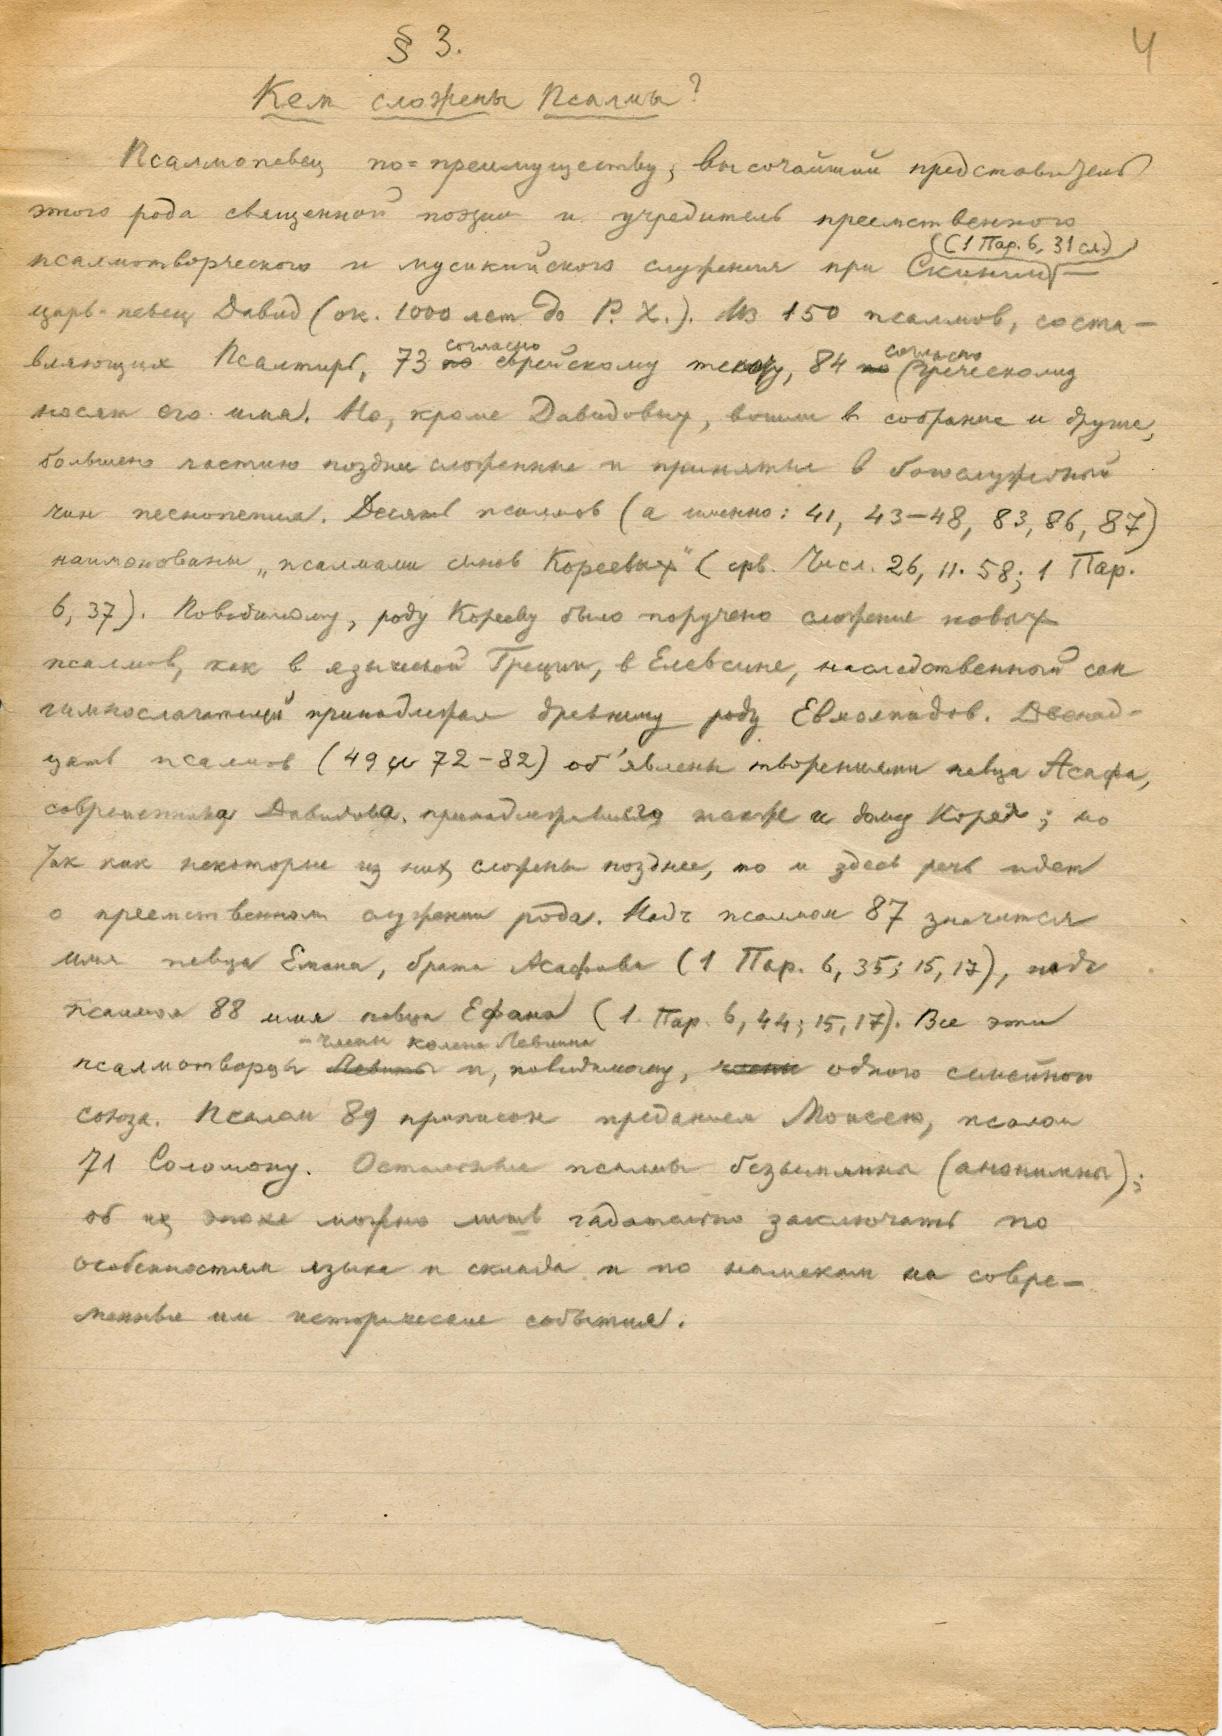 § 3.
4
Кем сложены Псалмы?
Псалмопевец по=преимуществу, высочайший представитель
этого рода священной поэзии и учредитель преемственного
(1 Пар. 6, 31 сл.)
псалмотворческого и мусикийского служения при Скинии —
царь-певец Давид (ок. 1000 лет до Р. Х.). Из 150 псалмов, соста-
согласно согласно
вляющих Псалтирь, 73 по еврейскому тексту, 84 по греческому
носят его имя. Но, кроме Давидовых, вошли в собрание и другие,
большею частию позднее сложенные и принятые в богослужебный
чин песнопения. Десять псалмов (а именно: 41, 43–48, 83, 86, 87)
наименованы „псалмами сынов Кореевых" (срв. Числ. 26, 11. 58; 1 Пар.
6, 37). Повидимому, роду Корееву было поручено сложение новых
псалмов, как в языческой Греции, в Елевсине, наследственный сан
гимнослагателей принадлежал древнему роду Евмолпидов. Двенад-
цать псалмов (49 и 72–82) об'явлены творениями певца Асафа,
современника Давидова, принадлежавшего также к дому Корея; но
так как некоторые из них сложены позднее, то и здесь речь идет
о преемственном служении рода. Надъ псалмом 87 значится
имя певца Емана, брата Асафова (1 Пар. 6, 35; 15, 17), надъ
псалмом 88 имя певца Ефана (1 Пар. 6, 44; 15, 17). Все эти
– члены колена Левиина
псалмотворцы Левиты и, повидимому, члены одного семейного
союза. Псалом 89 приписан преданием Моисею, псалом
71 Соломону. Остальные псалмы безымянны (анонимны);
об их эпохе можно лишь гадательно заключать по
особенностям языка и склада и по намекам на совре-
менные им исторические события.